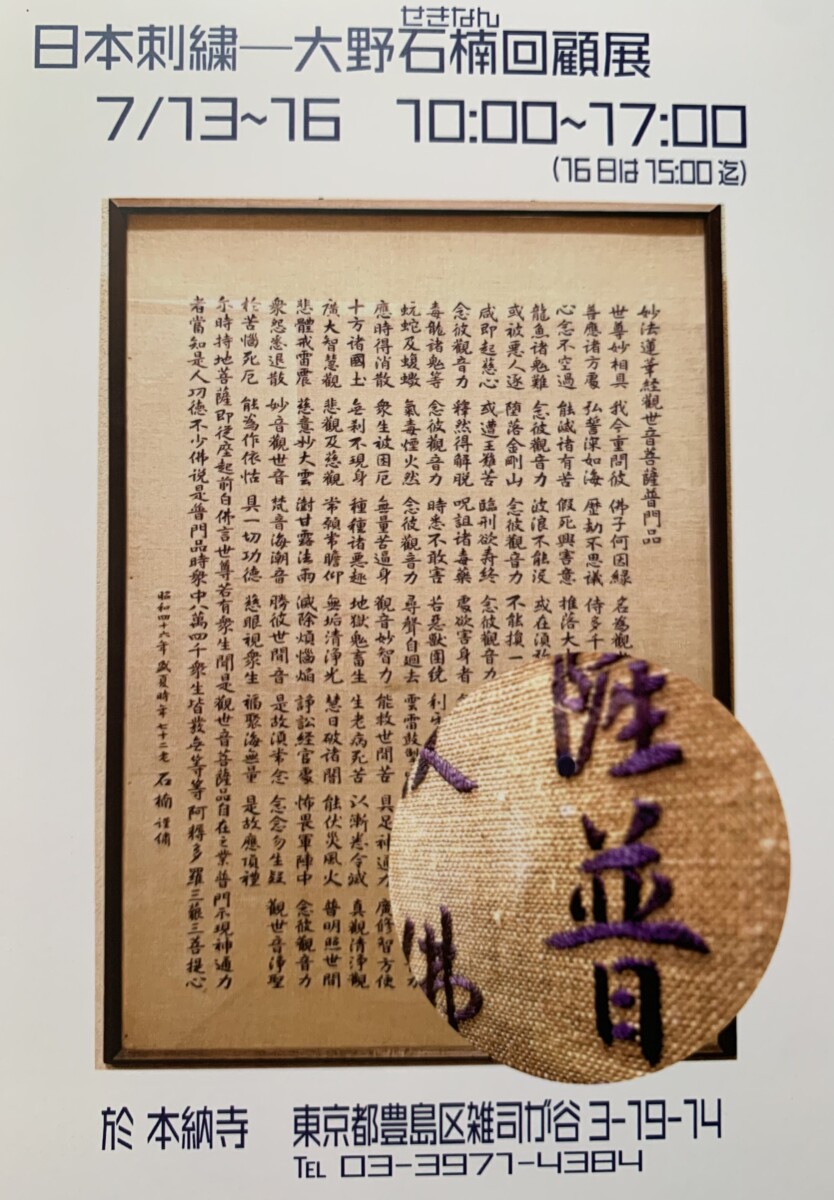 せきなん
日本刺繍―大野石楠回顧展
7/13~16 10:00~17:00
(16日は15:00迄)
妙法蓮華経觀世音菩薩普門品
世尊妙相具 我今重問彼 佛子何因緣 名為觀
善應諸方處 弘誓深如海 歷劫不思議 侍多千
心念不空過 能滅諸有苦 假死興害意 推落大
龍魚諸鬼難 念彼觀音力 波浪不能沒 或在須
或被惡人逐 墮落金剛山 念彼觀音力 不能損一
咸即起慈心 或遭王難苦 臨刑欲壽終 念彼觀音力
念彼觀音力 釋然得解脫 呪詛諸毒藥 處欲害身者
毒龍諸鬼等 念彼觀音力 時悉不敢害 若惡獸圍繞 利
蚖蛇及蝮蠍 氣毒煙火然 念彼觀音力 尋聲自迴去 雲雷鼓掣
應時得消散 衆生被困厄 無量苦逼身 觀音妙智力 能救世間苦 具足神通力 廣修智方便
十方諸國土 無刹不現身 種種諸惡趣 地獄鬼畜生 生老病死苦 以漸悉令滅 真觀清淨觀
廣大智慧觀 悲觀及慈觀 常願常瞻仰 無垢清淨光 慧日破諸闇 能伏災風火 普明照世間
悲體戒雷震 慈意妙大雲 澍甘露法雨 滅除煩惱焰 諍訟經官處 怖畏軍陣中 念彼觀音力
衆怨悉退散 妙音觀世音 梵音海潮音 勝彼世間音 是故須常念 念念勿生疑 觀世音淨聖
於苦惱死厄 能為作依怙 具一切功德 慈眼視衆生 福聚海無量 是故應頂禮
尒時持地菩薩即從座起前白佛言世尊若有衆生聞是觀世音菩薩品自在之業普門示現神通力
者當知是人功德不少佛說是普門品時衆中八萬四千衆生皆發無等等阿耨多羅三藐三菩提心
昭和四十六年 盛夏時年七十二老 石楠 謹繡
普
佛
於 本納寺 東京都豊島区雑司が谷 3-19-14
TEL 03-3971-4384